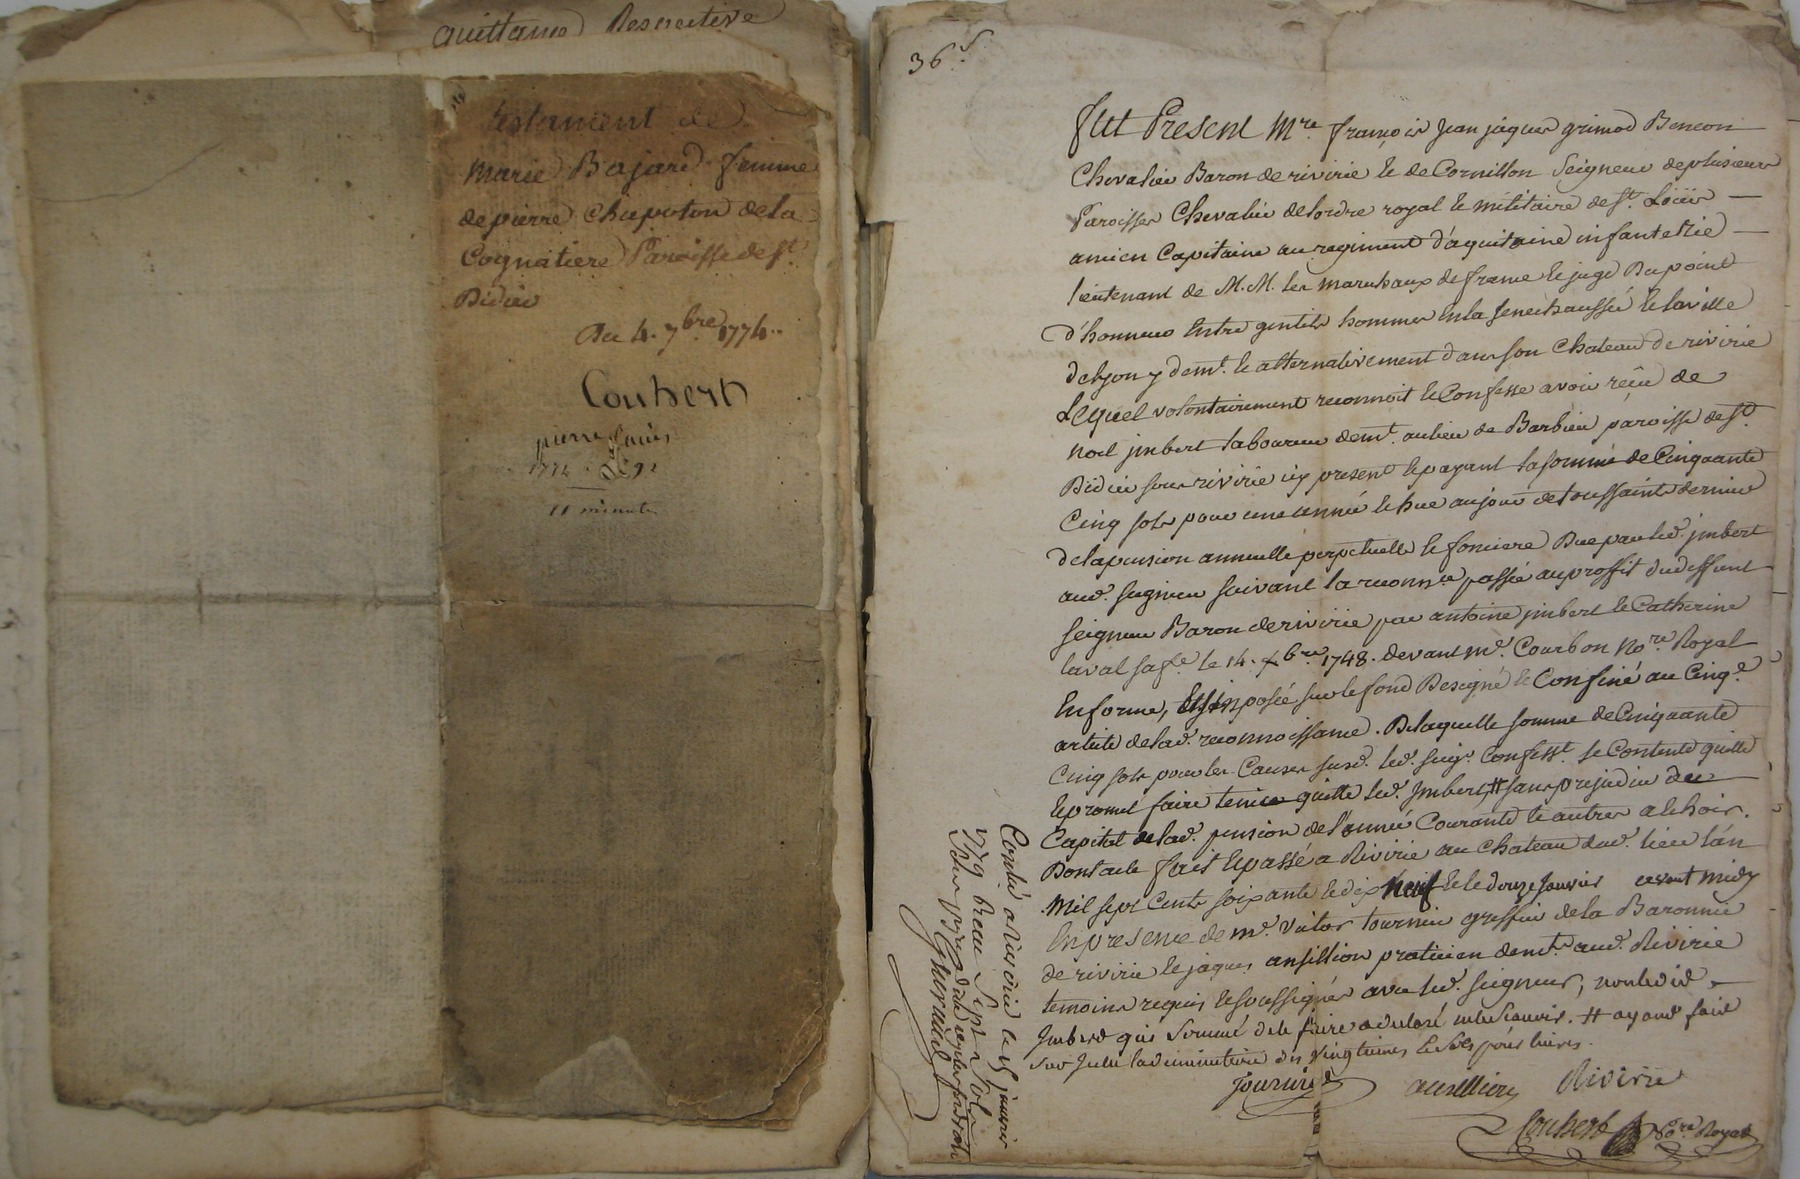 quittance Respective
testament de
Marie Bajard femme
de pierre Chapoton de la
Cognatiere Paroisse de st.
Didier
Du 4. 7bre 1774.
Couhert
pierre
1774
11 minutes
36 s.
fut Present Mre. françois Jean jâques grimod Beneon
Chevalier Baron deriririe & de Cornillon Seigneur de plusieurs
Paroisses Chevalier de lordre royal & militaire de st. Loüis
ancien Capitaine au regiment d'aquitaine infanterie
lieutenant de M.M. les marechaux de france & juge Du point
d'honneur Entre gentils hommes En la senechaussée & la ville
de lyon y demt. & alternativement dans son Chateau de riririe
Lequel volontairement reconnoit & Confesse avoir reçû de
noel jmbert laboureur demt. au lieu de Barbieu paroisse de st.
Didier sous riririe icy present & payant la somme de Cinquante
Cinq sols pour une année échue au jour de toussaints dernier
de la pension annuelle perpetuelle & fonciere Due par led. jmbert
aud. seigneur suivant la reconnce passée au proffit du deffunt
seigneur Baron de riririe par antoine jmbert & Catherine
laval sa fe. le 14. xbre. 1748. devant me. Courbon nore. Royal
En forme, Est imposée sur le fond Designé & Confiné au Cinqe.
article de lad. reconnoissance. De laquelle somme de Cinquante
Cinq sols pour les Causes susd. led. seigr. Confesst. se Contente quitte
& promet faire tenir quitte led. Jmbert, # sans prejudice du
Capital de lad. pension de l'année Courante & autres a echoir.
Dont acte fait & passé a Riririe au chateau dud. lieu l'an
Mil sept Cents soixante & dix neuf & le douze Janvier avant midy
En presence de me. Victor tournier greffier de la Baronnie
de riririe & jaques ansillion praticien demt. aud. Riririe
temoins requis & soussignés avec led. seigneur, non led.
Jmbert qui sommé de le faire a declaré ne le sçavoir. # ayant fait
sur icelle la diminution des vingtiemes & sols pour livres.
Tournier ansillion Riririe
Couhert nore. Royal
Contlé a Ririrие le 15 janvier
1779. Recu Sept sols